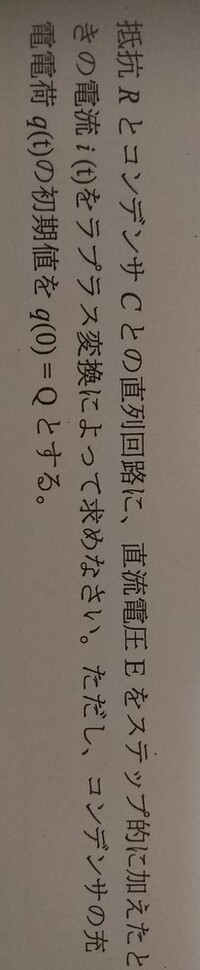 抵抗 R とコンデンサ C との直列回路に、直流電圧 E をステップ的に加えたと
きの電流 i (t)をラプラス変換によって求めなさい。ただし、コンデンサの充
電電荷 q(t)の初期値を q(0) = Q とする。